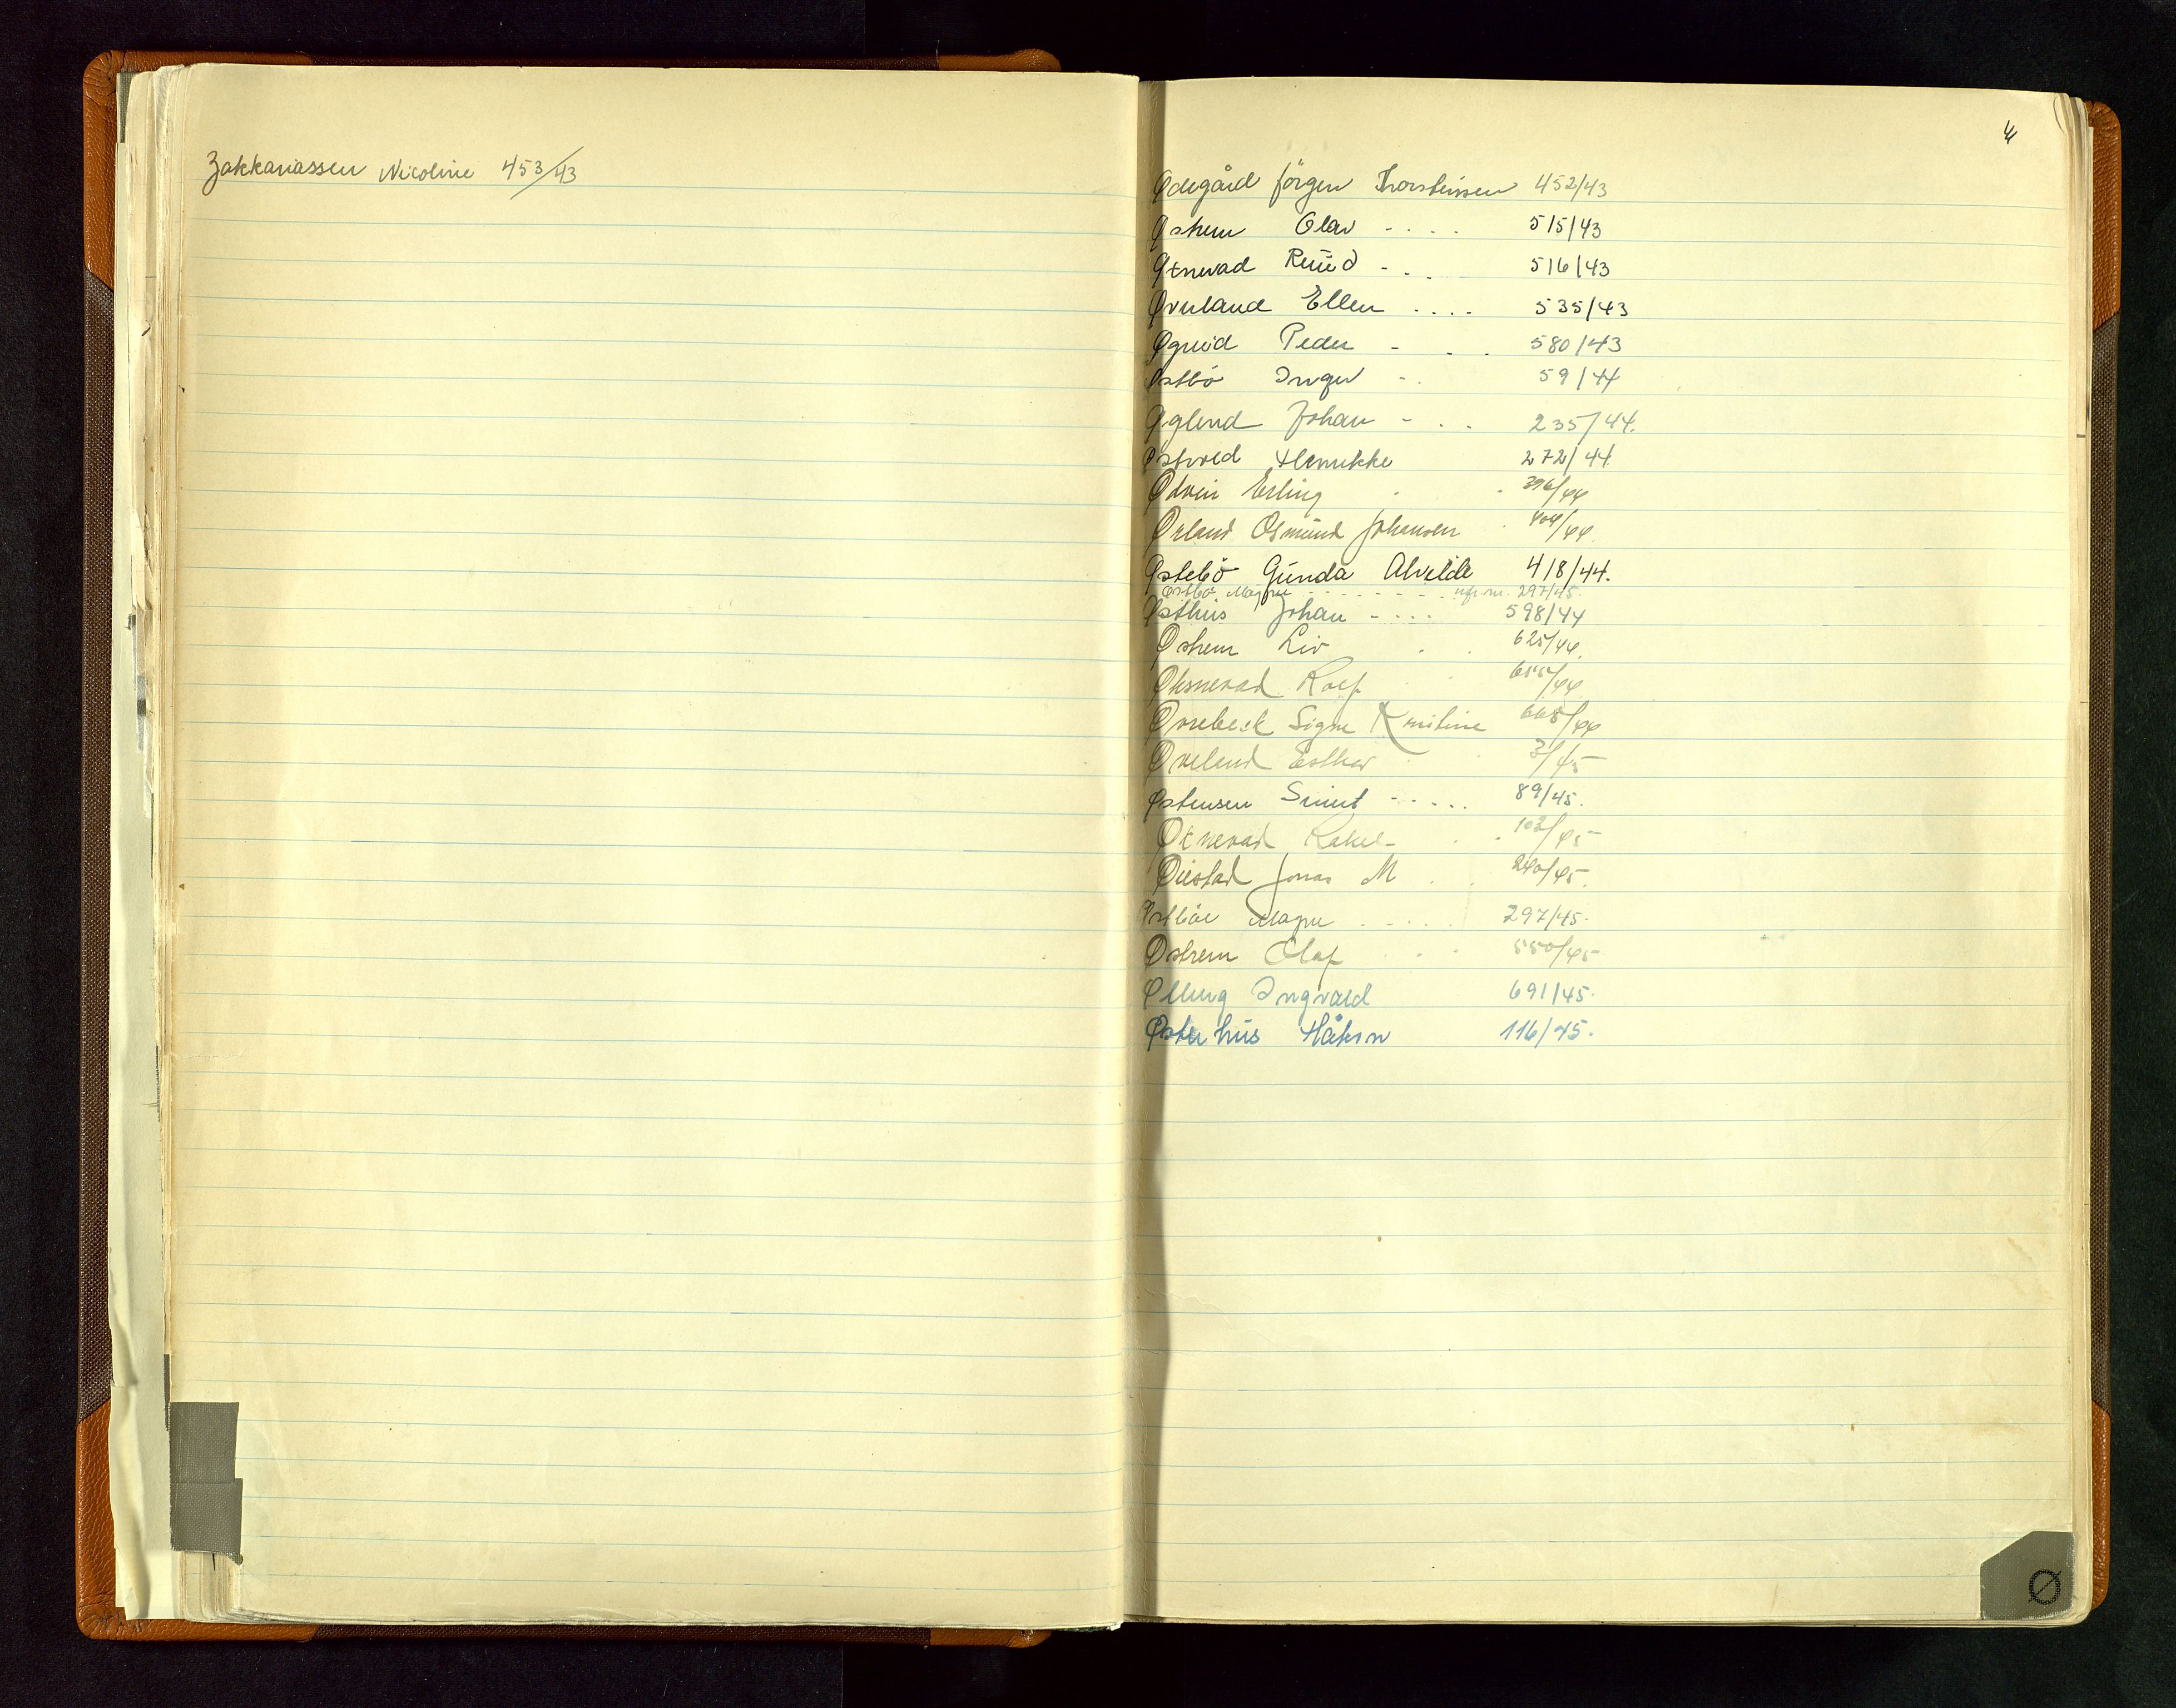 Zakkariassen Nicoline 453/43
4
Ødegård Jörgen Thorsteinssen 452/43
Østrem Olav - . . . 515/43
Øxnevad - . . 516/43
Øvruland Ellen . . . . 535/43
Øgreid Peder - . . 580/43
Østbö Inger - . 59/44
Øglend Johan - . . 235/44.
Østvold Henrikke 272/44
Ødvin Erling . . 396/44
Ørland Osmund Johansen . 404/44
Østebö Gunda Alvilde 418/44.
Östbö Magne - - - - - - - - 297/45.
Østhus Johan - . . . 598/44
Østrem Liv . . 625/44.
Øksnevad Rolf . . 655/44
Ørrebeck Signe 668/44
Øveland Esther . . 3/45
Østensen - - . . . 89/45.
Øxnevad Rakel - . . 103/45
Øiestad Jonas M . . 240/45.
Østböe Magne . . . . 297/45.
Østrem Olaf . . . 550/45
Ølberg Ingvald 691/45.
Østerhus Håkon 116/45.
Ø